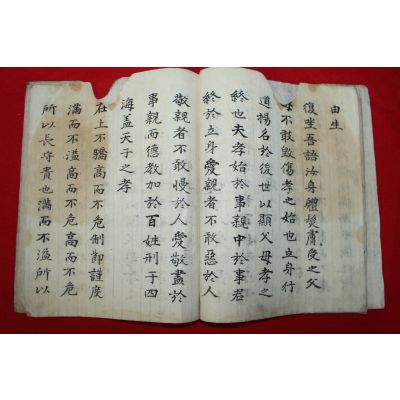 由生
復坐吾語汝身體髮膚受之父
母不敢毀傷孝之始也立身行
道揚名於後世以顯父母孝之
終也夫孝始於事親中於事君
終於立身愛親者不敢惡於人
敬親者不敢慢於人愛敬盡於
事親而德教加於百姓刑于四
海盖天子之孝
在上不驕高而不危制節謹度
滿而不溢高而不危高而不危
所以長守貴也滿而不溢所以